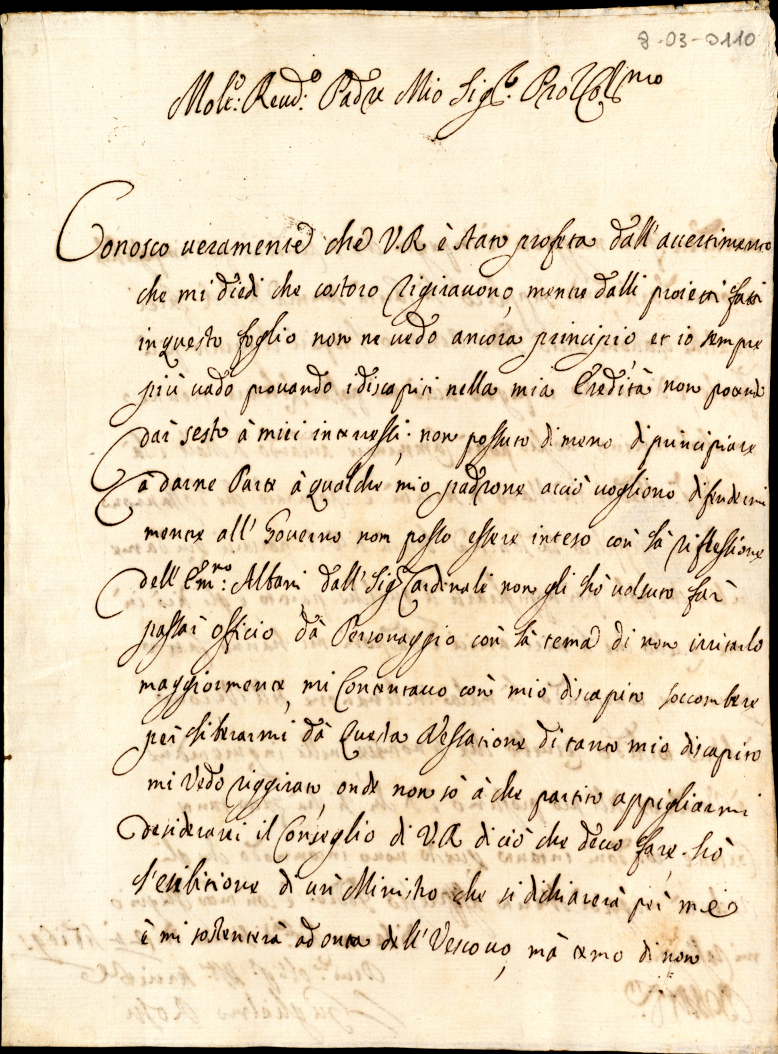 8-03-0110
Molt: Reud: Padre Mio Sig:
Conosco ueramente che V.R è stato profeta dall'auertimento
che mi diedi che costoro rigirauono, mentre dalli proietti fatti
in questo foglio non ne uedo ancora principio et io sempre
più uado prouando i discapiti nella mia Eredità non potendo
dar sesto à miei interessi, non possuto di meno di principiare
à darne Parte à qualche mio padrone acciò uogliono difendermi
mentre all' Gouerno non posso essere inteso con la riflessione
dell' Em:no Albani dall' Sig Cardinale non gli hò uolsuto far
passar officio da Personaggio con la tema di non irritarlo
maggiormente, mi Contentauo con mio discapito soccombere
per liberarmi da questa Vessatione di tanto mio discapito
mi Vedo riggirato, onde non sò à che partito appigliarmi
desiderarei il Conseglio di V.R di ciò che deuo fare, hò
l'esibitione di un Ministro che si dichiarerà per me
è mi sostenterà ad onta dell' Vescouo, mà temo di non